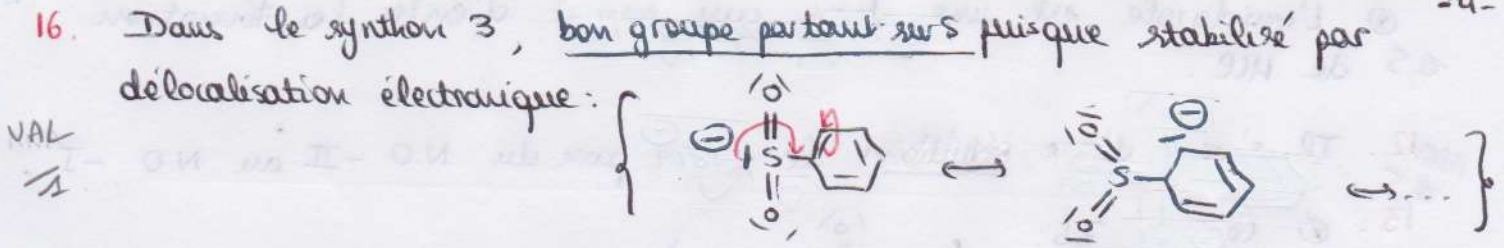 -4-
16. Dans le synthon 3, bon groupe partant sur S puisque stabilisé par
délocalisation électronique :
VAL
1